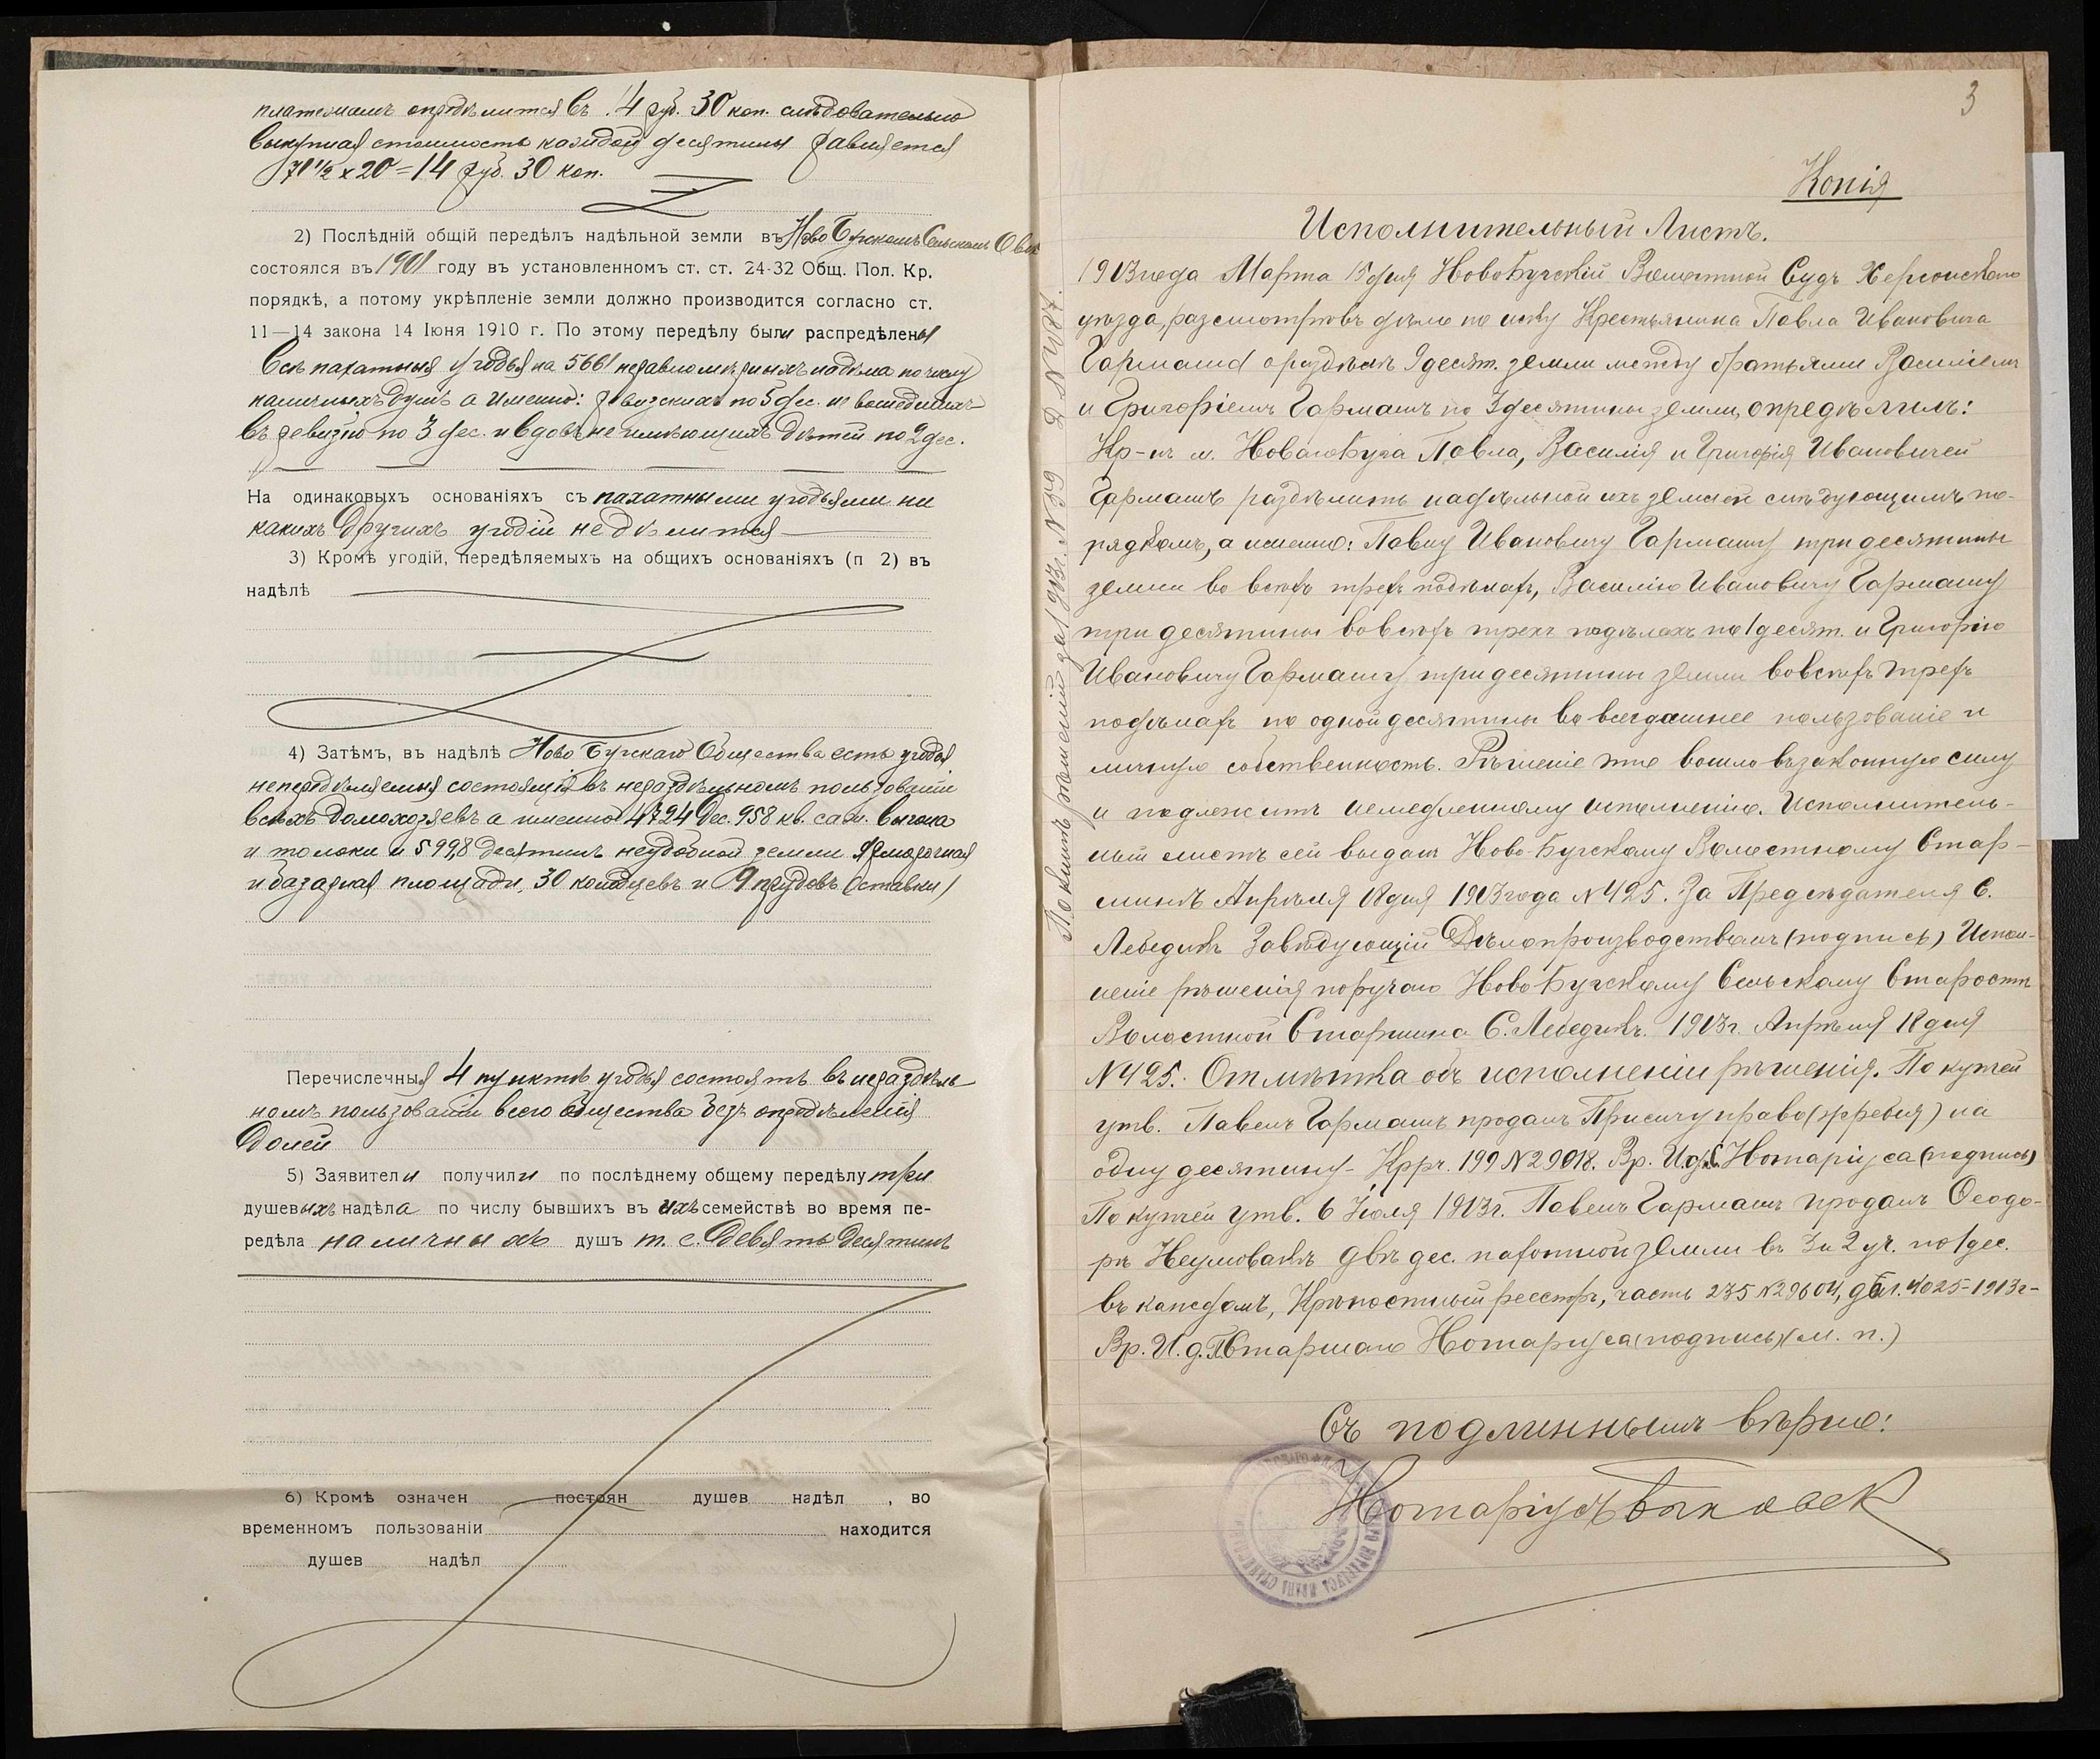 платежамъ опредѣлится въ 14 руб. 30 коп. слѣдовательно
выкупная стоимость каждой десятины равняется
71½ х 20 = 14 руб. 30 коп.
2) Послѣдній общій передѣлъ надѣльной земли въ Ново Бугскомъ Сельскомъ
состоялся въ 1901 году въ установленномъ ст. ст. 24-32 Общ. Пол. Кр.
порядкѣ, а потому укрѣпленіе земли должно производится согласно ст.
11—14 закона 14 Іюня 1910 г. По этому передѣлу были распредѣлены
Всѣ пахатныя угодья на 5661 неравномѣрныхъ надѣла по числу
наличныхъ душъ а именно: ревизскихъ по 5 дес. не вошедшихъ
въ ревизію по 3 дес. и вдовъ не имѣющихъ дѣтей по 2 дес.
На одинаковыхъ основаніяхъ съ пахатными угодьями ни
какихъ другихъ угодій не дѣлится
3) Кромѣ угодій, передѣляемыхъ на общихъ основаніяхъ (п 2) въ
надѣлѣ
4) Затѣмъ, въ надѣлѣ Ново Бугскаго Общества есть угодья
непередѣляемыя состоящія въ нераздѣльномъ пользованіи
всѣхъ домохозяевъ а именно 4724 дес. 958 кв. саж. выгона
и толоки и 599,8 десятинъ неудобной земли Ярмарочная
и базарная площади, 30 колодцевъ и 9 прудовъ (ставки)
Перечисленныя 4 пунктѣ угодья состоятъ въ нераздѣль
номъ пользованіи всего общества безъ опредѣленія
долей
5) Заявители получили по послѣднему общему передѣлу три
душевыхъ надѣла по числу бывшихъ въ ихъ семействѣ во время пе-
редѣла наличныхъ душъ т. е. девять десятинъ
6) Кромѣ означен постоян душев надѣл , во
временномъ пользованіи находится
душев надѣл
3
Копія
Исполнительный Листъ.
1913 года Марта 15 дня НовоБугскій Волостной Судъ Херсонскаго
уѣзда, разсмотрѣвъ дѣло по иску Крестьянина Павла Ивановича
Гармаша о раздѣлѣ 9 десят. земли между братьями Василіемъ
и Григоріемъ Гармашъ по 3 десятины земли, опредѣлилъ:
Кр-нъ м. Новаго Буга Павла, Василія и Григорія Ивановичей
Гармашъ раздѣлить надѣльной ихъ землей слѣдующимъ по-
рядкомъ, а именно: Павлу Ивановичу Гармашу три десятины
земли во всѣхъ трехъ подѣлахъ, Василію Ивановичу Гармашу
три десятины во всѣхъ трехъ подѣлахъ по 1 десят. и Григорію
Ивановичу Гармашу три десятины земли во всѣхъ трехъ
подѣлахъ по одной десятины во всегдашнее пользованіе и
личную собственность. Рѣшеніе это вошло въ законную силу
и подлежитъ немедленному исполненію. Исполнитель-
ный листъ сей выданъ Ново-Бугскому Волостному Стар-
шинѣ Апрѣля 18 дня 1913 года № 425. За Предсѣдателя С.
Лебедикъ Завѣдующій Дѣлопроизводствомъ (подпись) Испол-
неніе рѣшенія поручаю НовоБугскому Сельскому Старостѣ
Волостной Старшина С. Лебедикъ. 1913 г. Апрѣля 18 дня
№ 425. Отмѣтка объ исполненіи рѣшенія. По купчей
утв. Павелъ Гармашъ продалъ право (жребія) на
одну десятину - Крр. 199 № 29018. Вр. И.д. Нотаріуса (подпись)
По купчей утв. 6 Іюля 1913 г. Павелъ Гармашъ продалъ Ѳеодо-
рѣ двѣ дес. пахотной земли въ 3 и 2 уч. по 1 дес.
въ каждомъ, Крѣпостный реестръ, часть 235 № 29604, 4025-1913 г-
Вр. И. д. Старшаго Нотаріуса (подпись) (м. п.)
Съ подлиннымъ вѣрно:
Нотаріусъ